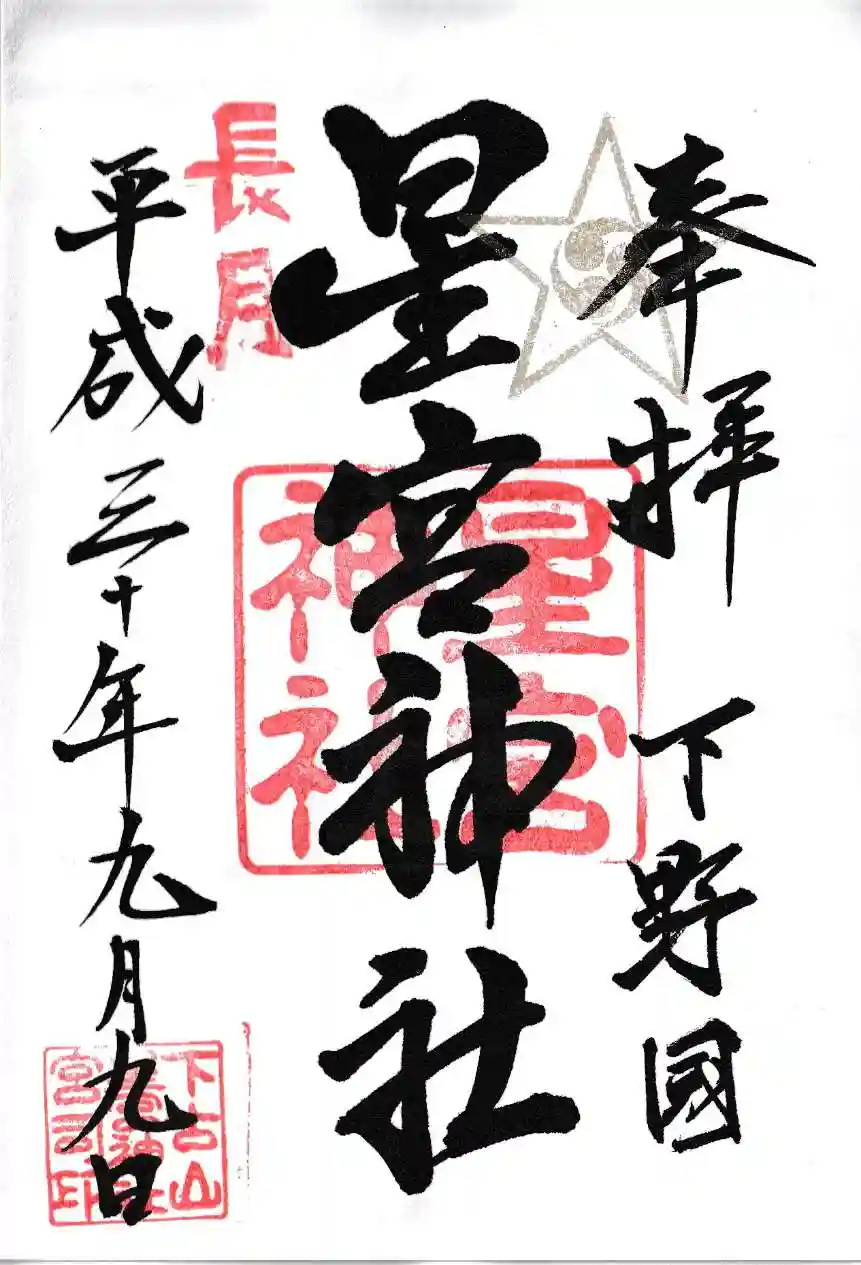 奉拝 下野國
星宮神社
星宮
神社
長月
平成三十年九月九日
下古山
星宮神社
宮司印